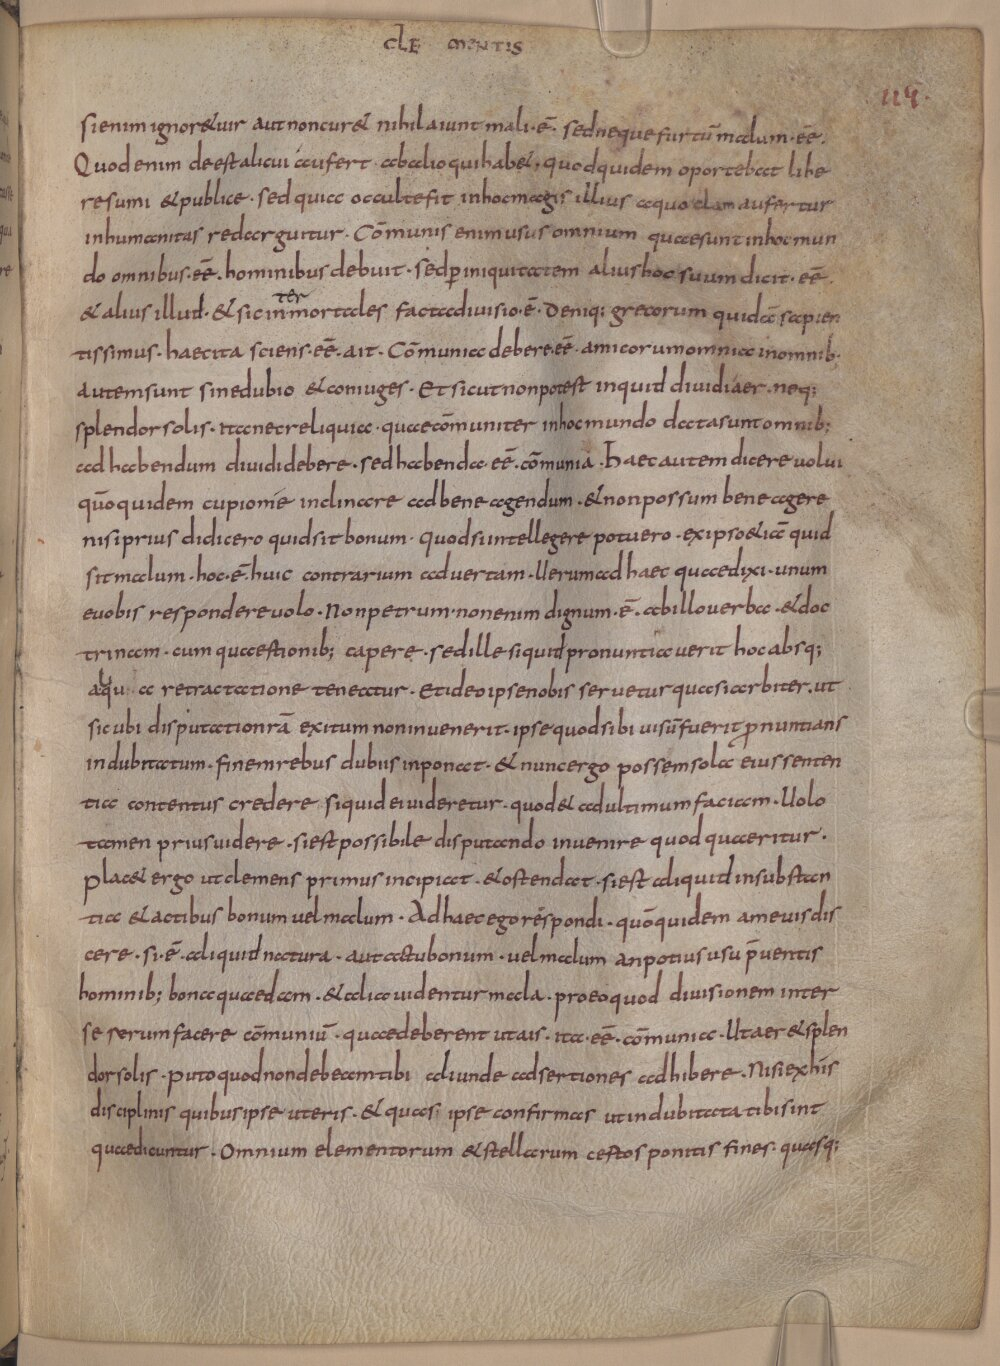 CLE MENTIS
114.
sienim ignor&uir aut noncur& nihil aiunt mali · ē · sed neque furtū malum · eē ·
Quod enim deest alicui aufert ab alio qui hab& · quod quidem oportebat libe
re sumi & publice · sed quia occulte fit inhoc magis illius a quo clam aufertur
inhumanitas redarguitur · Cōmunis enim usus omnium quae sunt inhoc mun
do omnibus · eē · hominibus debuit · sed p̄ iniquitatem alius hoc suum dicit · eē ·
& alius illud · & sic inter mortales facta diuisio · ē · Deniq; grecorum quidā sapien
tissimus · haec ita sciens · eē · ait · Cōmunia debere · eē · amicorum omnia inomnib;
autem sunt sine dubio & coniuges · Et sicut non potest inquid diuidi aer · neq;
splendor solis · ita nec reliquia · quae cōmuniter inhoc mundo data sunt omnib;
ad habendum diuidi debere · sed habenda · eē · cōmunia · Haec autem dicere uolui
quō quidem cupio me inclinare ad bene agendum · & non possum bene agere
nisi prius didicero quid sit bonum · Quod si intellegere potuero · ex ipso & iā quid
sit malum · hoc · ē · huic contrarium aduertam · Uerum ad haec quae dixi · unum
e uobis respondere uolo · Non petrum · non enim dignum · ē · ab illo uerba · & doc
trinam · cum quaestionib; capere · sed ille siquid pronuntiauerit hoc absq;
aliqua retractatione teneatur · Et ideo ipse nobis seruetur quasi arbiter · ut
sicubi disputatio nrā exitum non inuenerit · ipse quod sibi uisū fuerit p̄nuntians
indubitatum · finem rebus dubiis inponat · & nunc ergo possem sola eius senten
tia contentus credere siquid ei uideretur · quod & ad ultimum faciam · Uolo
tamen prius uidere · si est possibile disputando inuenire quod quaeritur ·
Plac& ergo ut clemens primus incipiat · & ostendat · si est aliquid in substan
tia & actibus bonum uel malum · Ad haec ego respondi · quō quidem a me uis dis
cere · si · ē · aliquid natura · aut actu bonum · uel malum an potius usu p̄uentis
hominib; bona quaedam · & alia uidentur mala · pro eo quod diuisionem inter
se serum facere cōmuniū · quae deberent ut ais · ita · eē · cōmunia · Ut aer & splen
dor solis · puto quod non debeam tibi aliunde adsertiones adhibere · Nisi ex his
disciplinis quibus ipse uteris · & quas ipse confirmas ut indubitata tibi sint
quae dicuntur · Omnium elementorum & stellarum certos ponitis fines · quasq;